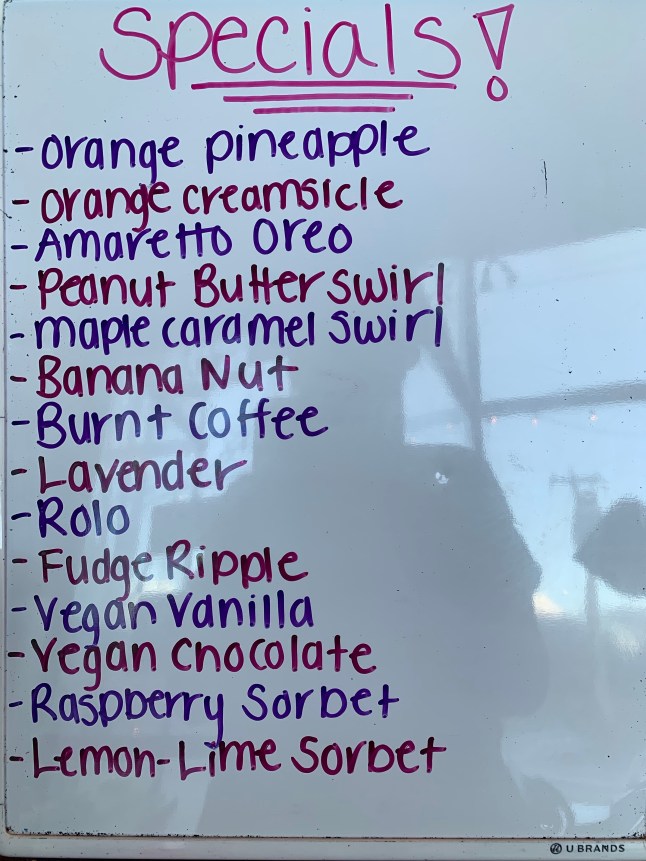 Specials!
- orange pineapple
- orange creamsicle
- Amaretto Oreo
- Peanut Butter swirl
- maple caramel swirl
- Banana Nut
- Burnt Coffee
- Lavender
- Rolo
- Fudge Ripple
- Vegan Vanilla
- Vegan Chocolate
- Raspberry Sorbet
- Lemon-Lime Sorbet
U BRANDS